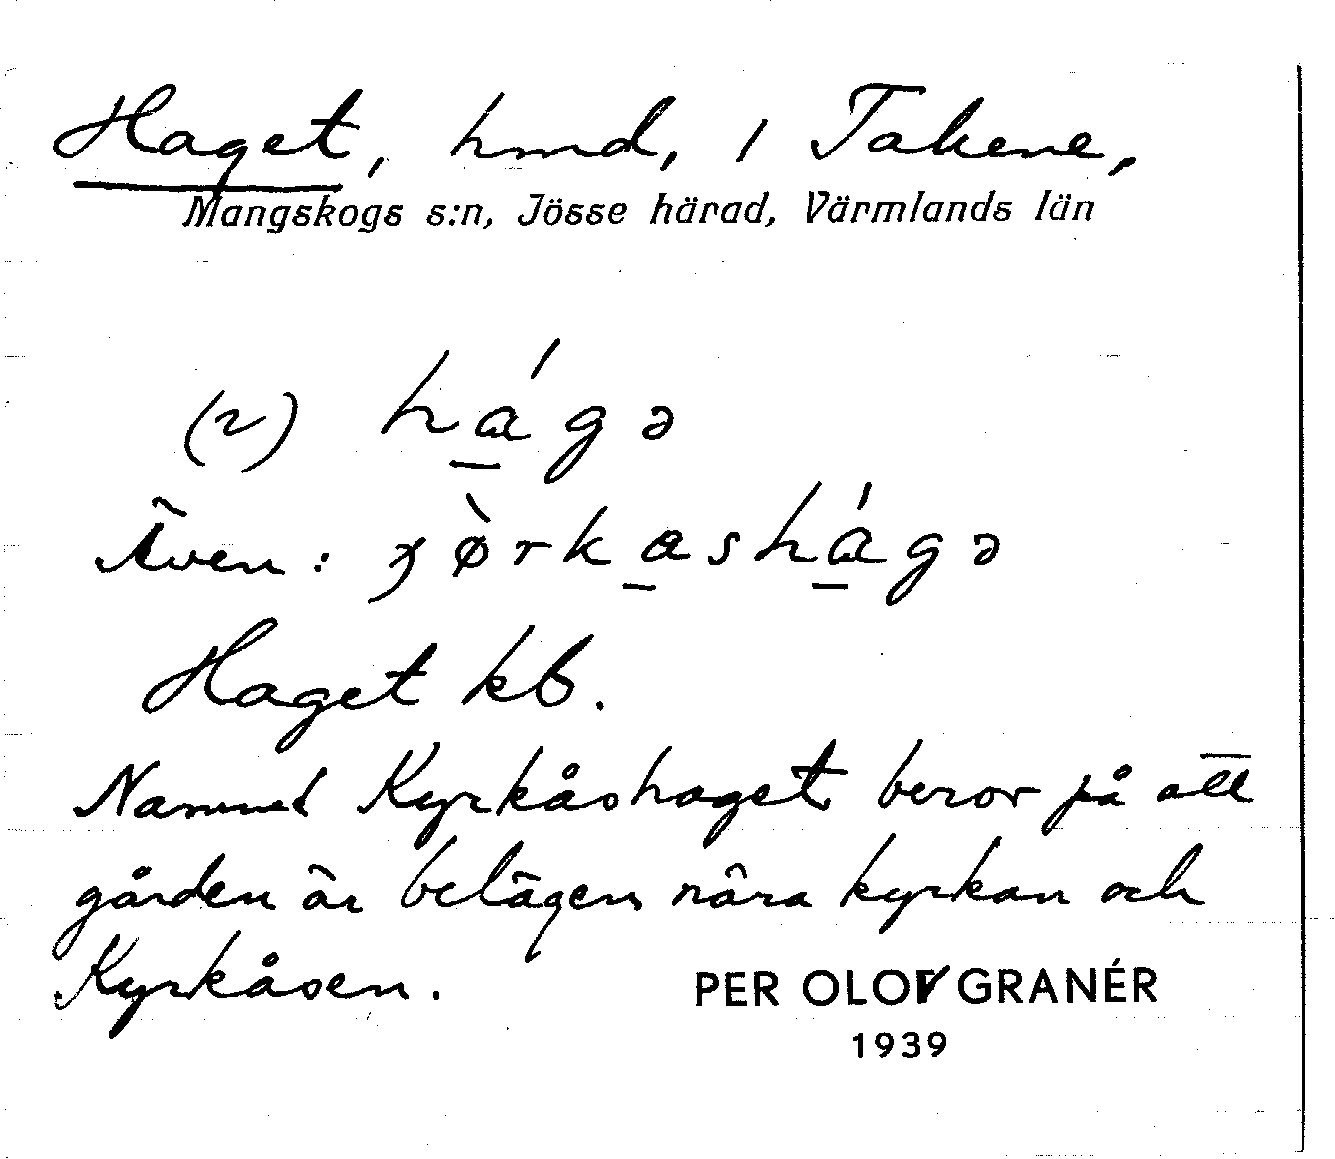 Haget, hmd, i Takene,
Mangskogs s:n, Jösse härad, Värmlands län
(2) hág̱ə
Även: ɟø̀rka̱shá̱gə
Haget kb.
Namnet Kyrkåshaget beror på att
gården är belägen nära kyrkan och
Kyrkåsen.
PER OLOV GRANÉR
1939